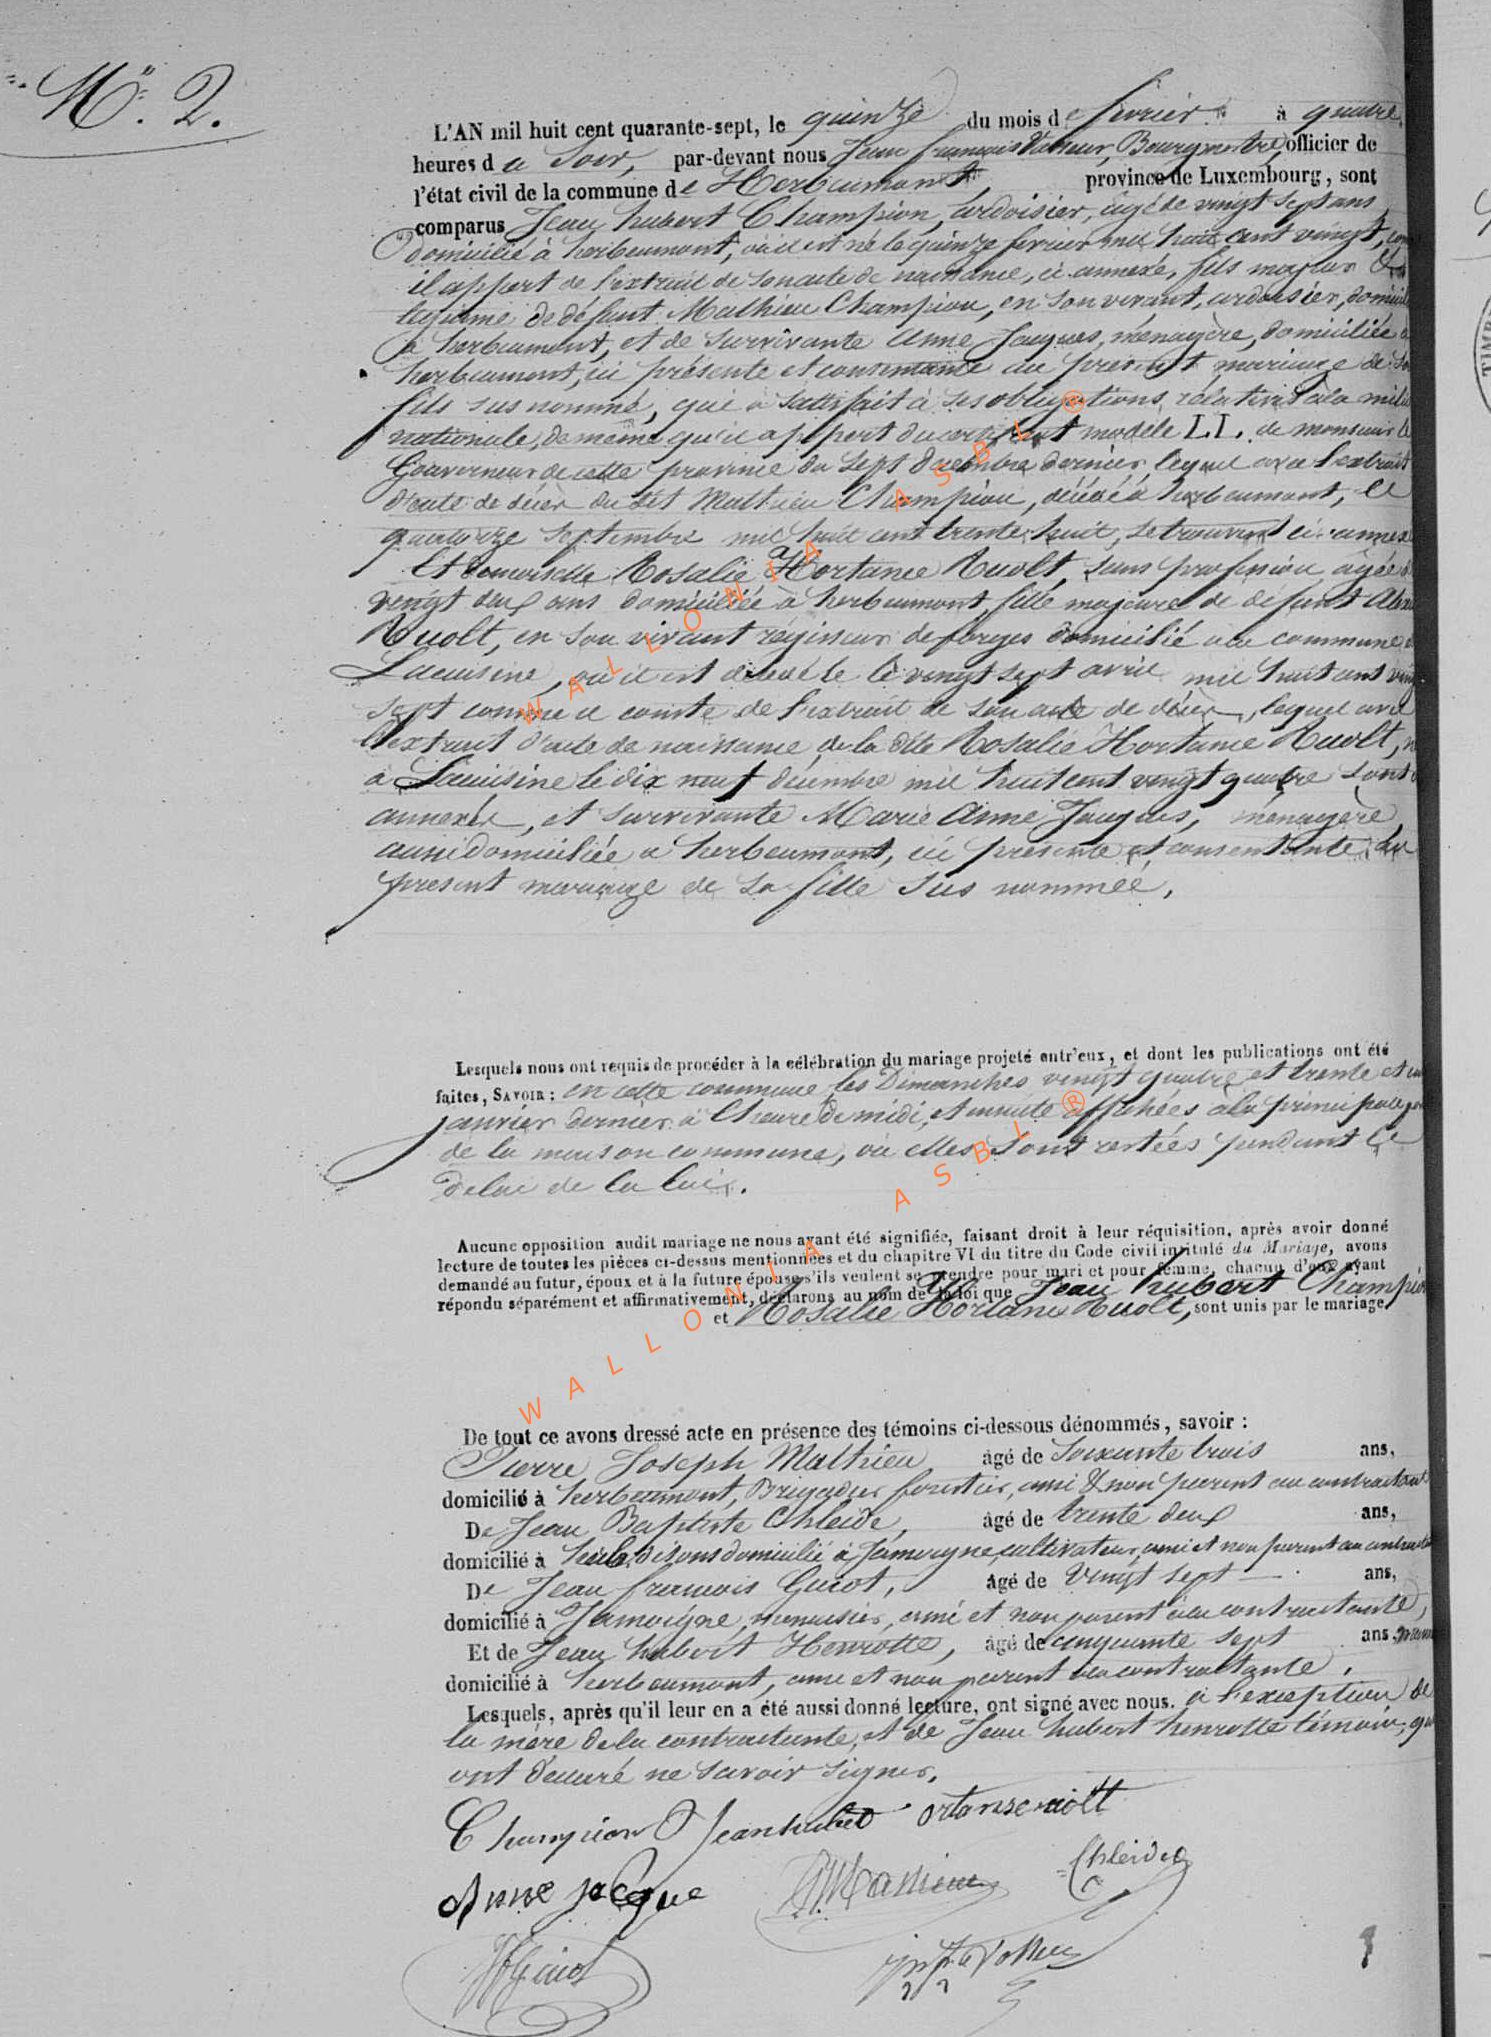 N° 2.
L'AN mil huit cent quarante-sept, le quinze du mois de février à quatre
heures du Soir, par-devant nous Jean françois Bourgmestre, officier de
l'état civil de la commune de Herbeumont, province de Luxembourg, sont
comparus Jean hubert Champion, ardoisier, agé de vingt sept ans
domicilié à herbeumont, où il est né le quinze fevrier mil huit cent vingt,
il appert de l'extrait de son acte de naissance, ci-annexé, fils majeur &
legitime de défunt Mathieu Champion, en son vivant, ardoisier,
à herbeumont, et de Survivante Anne Jaques, ménagère, domiciliée
herbeumont, ici présente et consentante au present mariage de
fils sus nommé, qui a Satisfait à ses obligations rélatives à la
nationale, de même qu'il appert du certificat modèle LL. de monsieur le
Gouverneur de cette province du Sept decembre dernier lequel avec l'extrait
d'acte de décès du dit Mathieu Champion, décédé à herbeumont, le
quatorze Septembre mil huit cent trente huit, se trouvent ci-annexé
Et Demoiselle Rosalie Hortance Ruolt, sans profession agée
vingt deux ans domiciliée à herbeumont, fille majeure de défunt
Ruolt, en son vivant régisseur de forges domicilié à la commune
Lacuisine, où il est décédé le vingt sept avril mil huit cent
sept comme il conste de l'extrait de son acte de décès, lequel avec
l'extrait d'acte de naissance de la dite Rosalie Hortance Ruolt,
à Lacuisine le dix neuf décembre mil huit cent vingt quatre sont
annexés, et survivante Marie Anne Jaques, ménagère
aussi domiciliée à herbeumont, ici présente et consentante au
présent mariage de sa fille sus nommée,
Lesquels nous ont requis de procéder à la célébration du mariage projeté entr'eux, et dont les publications ont été
faites, SAVOIR : en cette commune les Dimanches vingt quatre et trente et un
janvier dernier à l'heure de midi, et ensuite affichées à la principale
de la maison commune, où elles sont restées pendant le
delai de la loi.
Aucune opposition audit mariage ne nous ayant été signifiée, faisant droit à leur réquisition, après avoir donné
lecture de toutes les pièces ci-dessus mentionnées et du chapitre VI du titre du Code civil intitulé du Mariage, avons
demandé au futur, époux et à la future épouse s'ils veulent se prendre pour mari et pour femme, chacun d'eux ayant
répondu séparément et affirmativement, déclarons au nom de la loi que Jean hubert Champion
et Rosalie Hortance Ruolt, sont unis par le mariage
De tout ce avons dressé acte en présence des témoins ci-dessous dénommés, savoir :
Pierre Joseph Mathieu âgé de Soixante trois ans,
domicilié à herbeumont, Brigadier forestier, ami & non parent au contractant
De Jean Baptiste Chleide, âgé de trente deux ans,
domicilié à disons domicilié à Jamoigne, cultivateur, ami et non parent au
De Jean francois Guiot, âgé de Vingt Sept ans,
domicilié à Jamoigne, menuisier, ami et non parent à la contractante,
Et de Jean hubert Henrotte, âgé de cinquante sept ans
domicilié à herbeumont, ami et non parent à la contractante.
Lesquels, après qu'il leur en a été aussi donné lecture, ont signé avec nous. à l'exception de
la mère de la contractante, et de Jean hubert henrotte témoin,
ont declaré ne savoir signer.
Champion Jeanhubert
Anne jacque
Chleide
JfGuiot
WALLONIA ASBL ®
WALLONIA ASBL ®